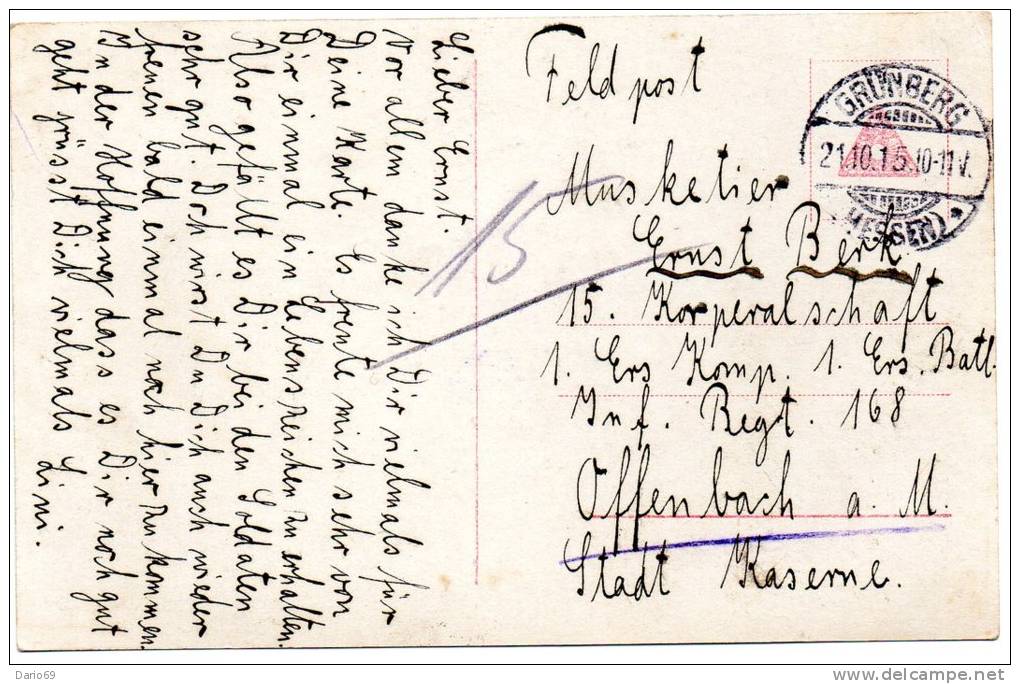 Lieber Ernst.
Vor allem danke ich Dir vielmals für
Deine Karte. Es freute mich sehr von
Dir einmal ein Lebenszeichen zu erhalten.
Also gefällt es Dir bei den Soldaten
sehr gut. Doch wirst Du Dich auch wieder
freuen bald einmal noch hier zu kommen.
In der Hoffnung das es Dir noch gut
geht grüsst Dich vielmals Lini.
15
Feldpost
Musketier
Ernst Berk.
15. Korperalschaft
1. Ers Komp. 1. Ers. Batl.
Inf. Regt. 168
Offenbach a. M.
Stadt Kaserne.
GRÜNBERG
21.10.15.10-11V.
(HESSEN)
Dario69
delcampe.net